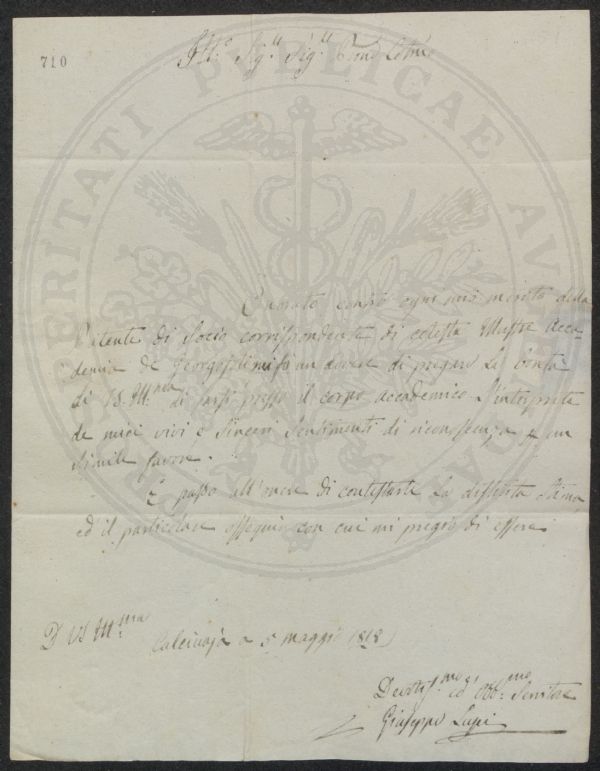 710
Ill.º Sig.re Sig.re
Onorato contro ogni mio merito della
Patente di Socio corrispondente di cotesta Illustre Acca-
demia de Georgofili mi fò un dovere di pregare la bontà
di VS. Ill.ma di farsi presso il corpo accademico l'interprete
de miei vivi e sinceri sentimenti di riconoscenza p un
simile favore.
E passo all'onore di contestarle la distinta stima,
ed il particolare ossequio con cui mi pregio di essere
D VS Ill.ma
Calcinaja a 5 maggio 1818
Devotis.mo ed Obb.mo Servitore
Giuseppe Lupi
PROSPERITATI PUBLICAE AUGENDAE